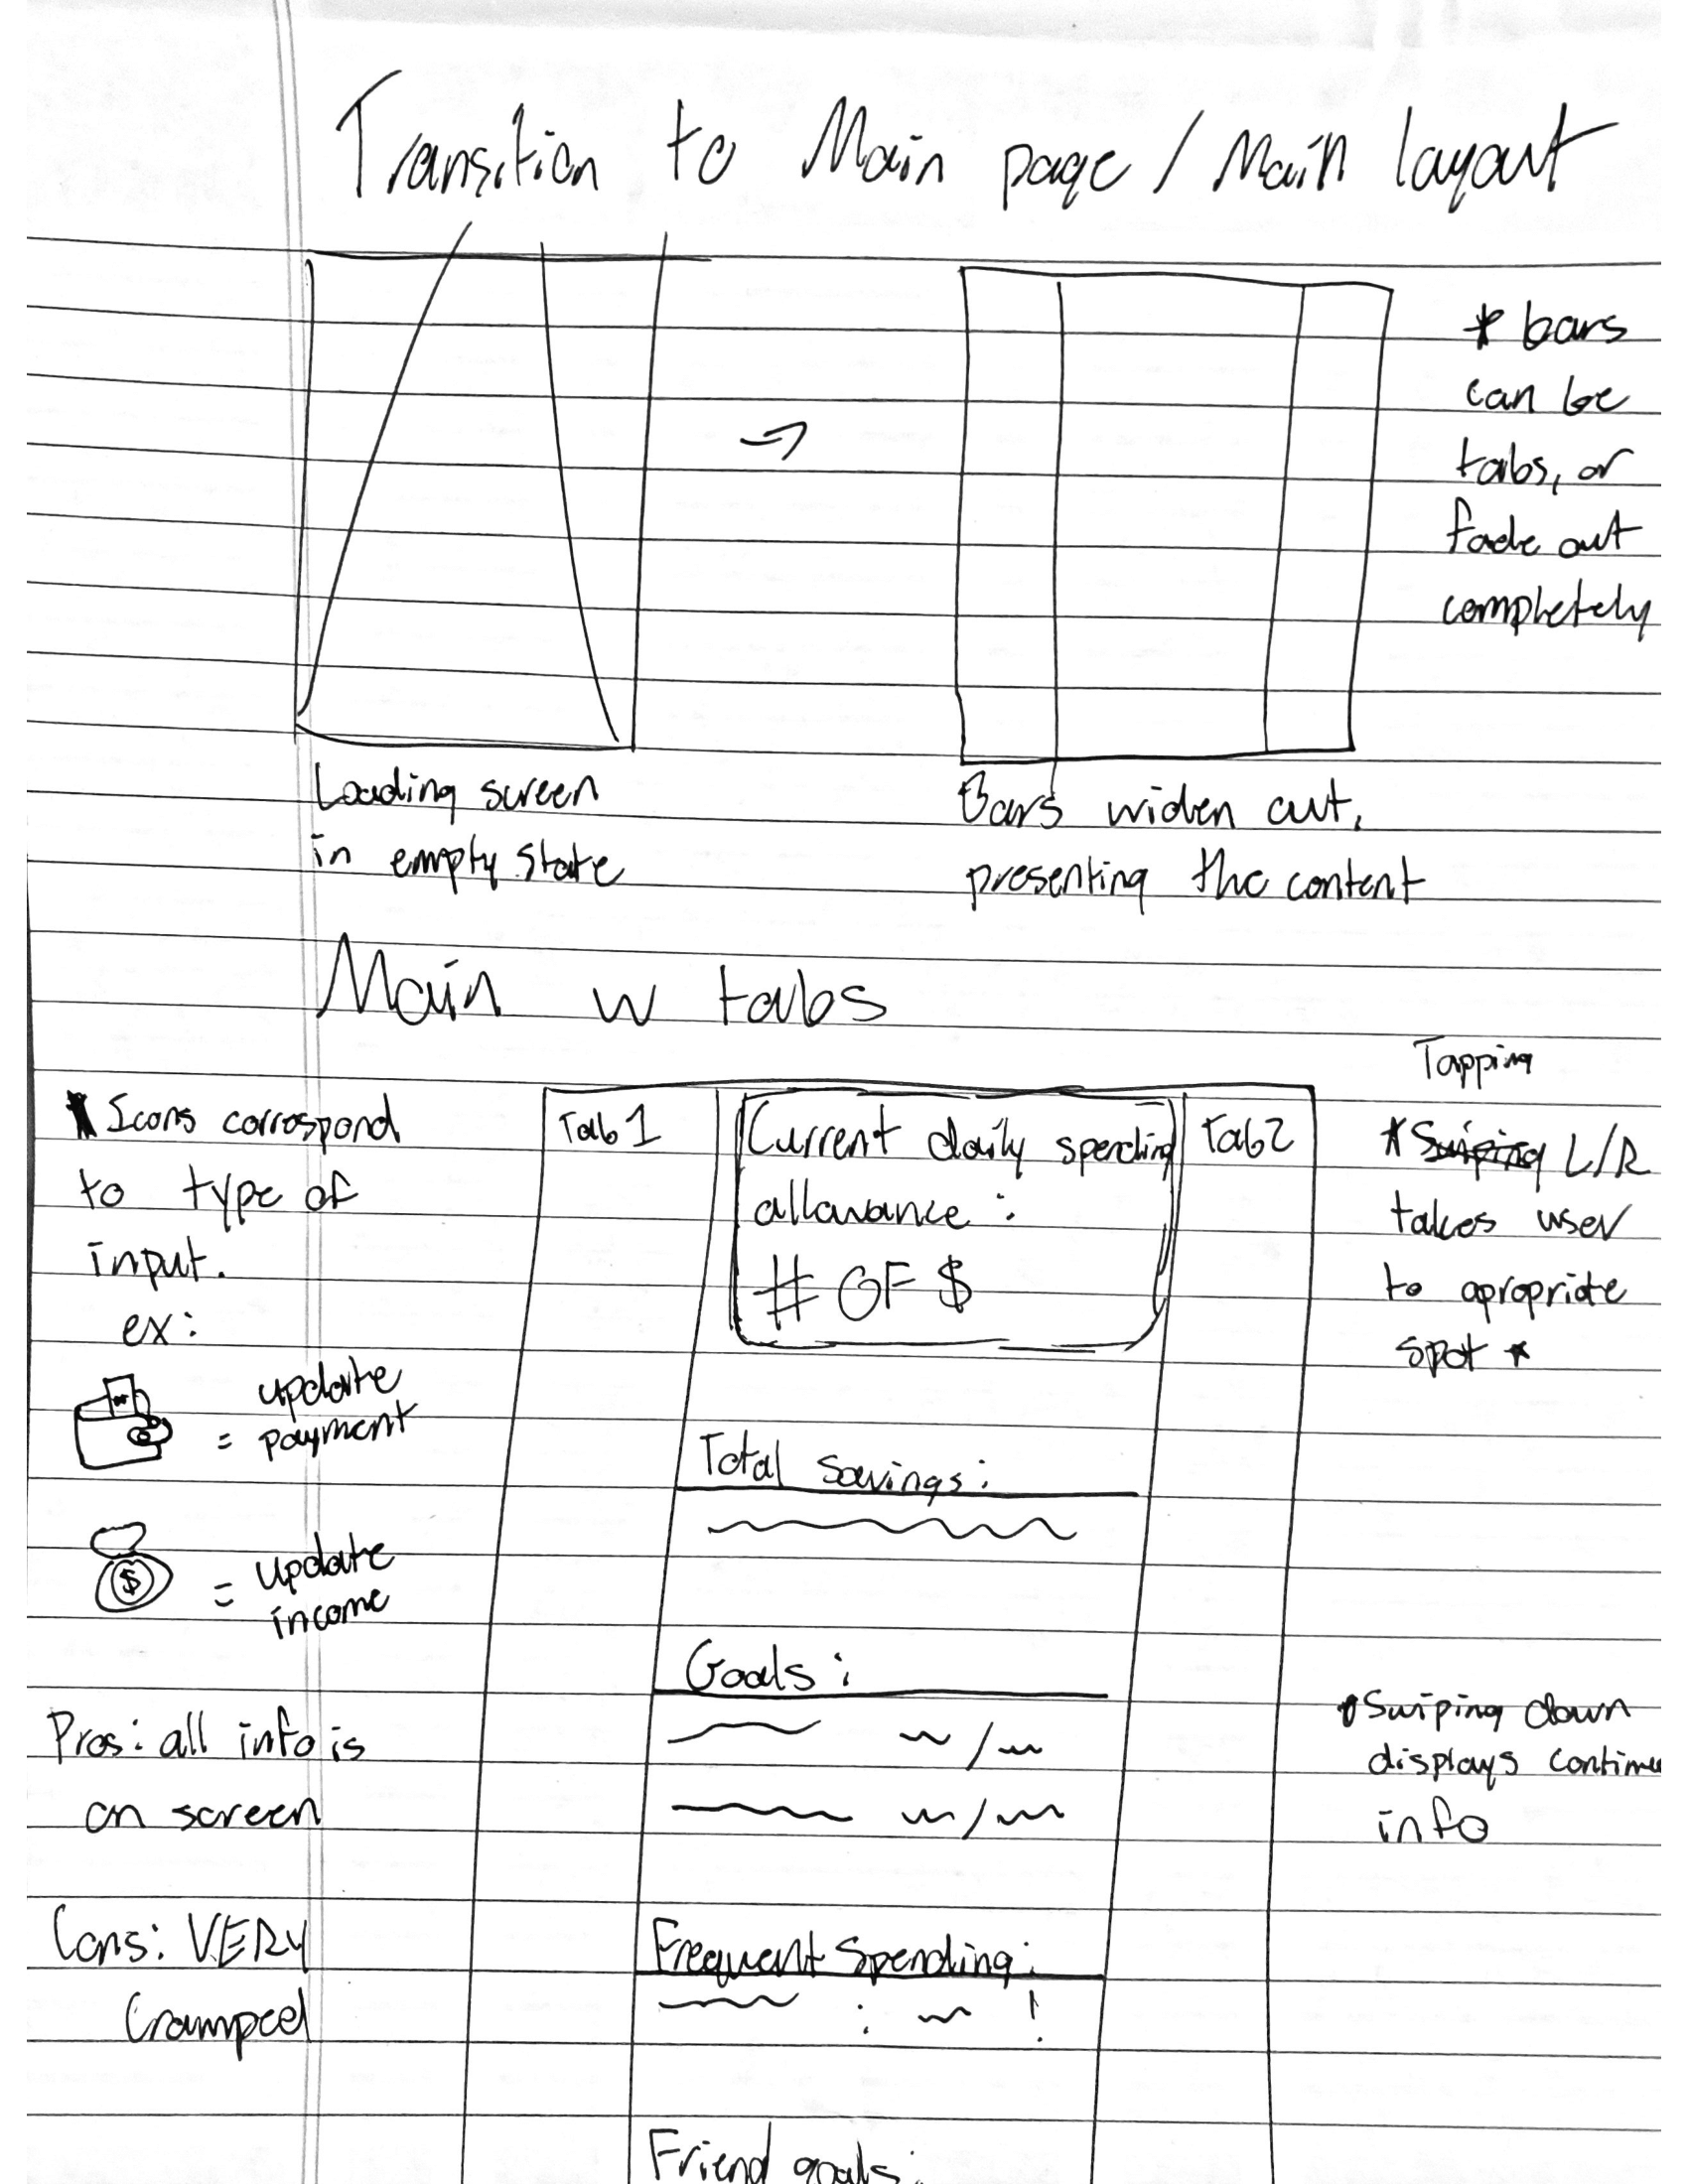 Transition to Main page / Main layout
* bars
can be
tabs, or
fade out
completely
Loading screen
in empty state
Bars widen out,
presenting the content
Main w tabs
* Icons correspond
to type of
input.
ex:
= update
payment
$
= update
income
Pros: all info is
on screen
Cons: VERY
Cramped
Tab 1
Current daily spending
allawance :
# OF $
Total savings:
Goals :
/
/
Frequent Spending:
: !
Friend goals:
Tab 2
Tapping
* Swiping L/R
takes user
to apropriate
spot *
* Swiping down
displays continue
info